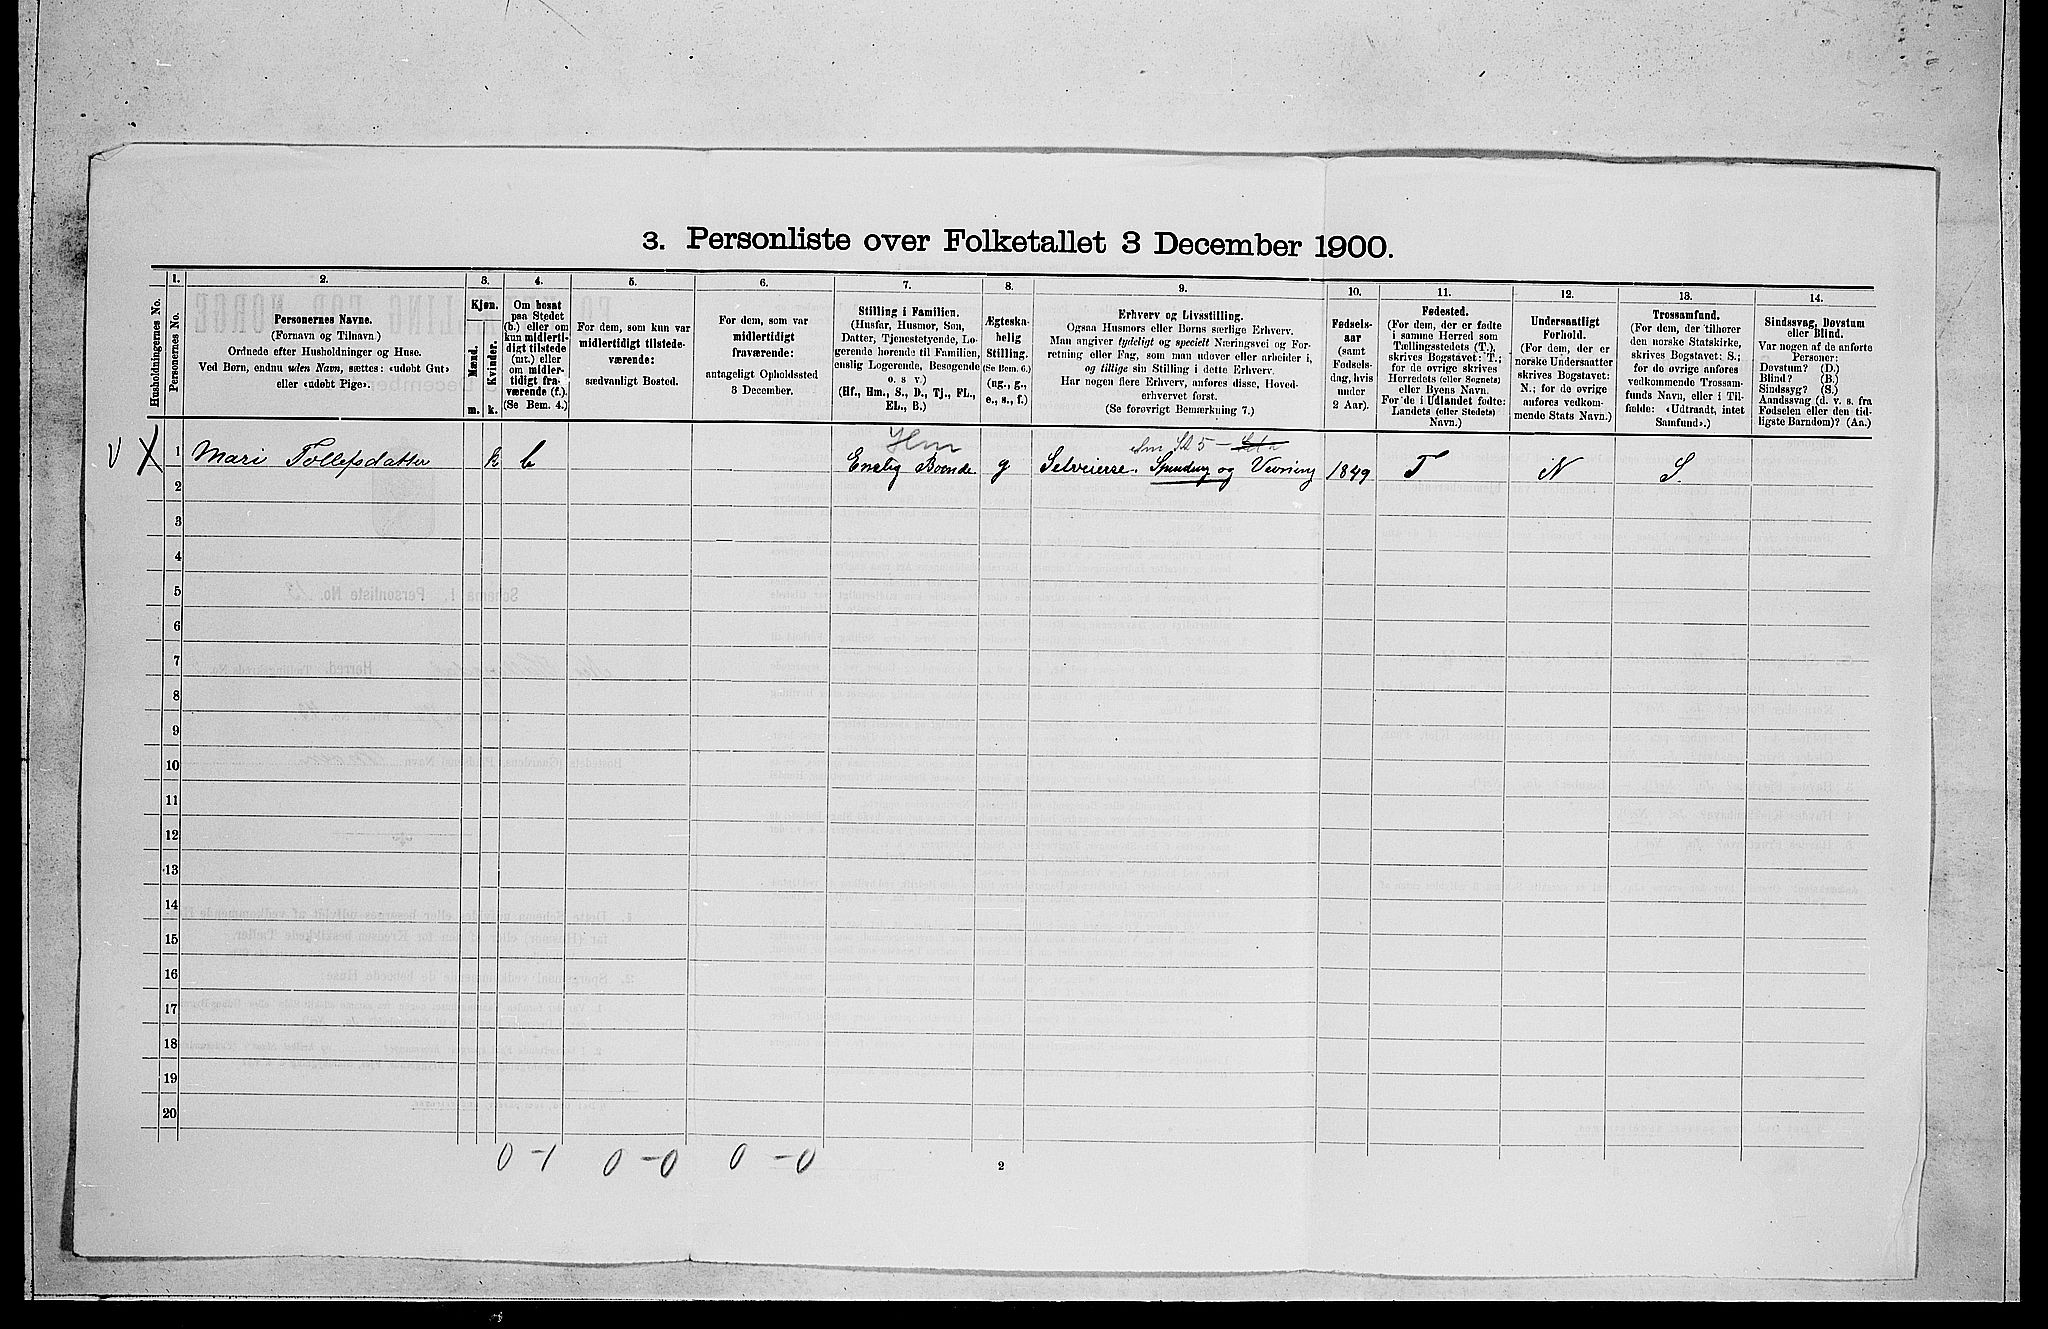 3. Personliste over Folketallet 3 December 1900.
Husholdningernes No.
1.
Personernes No.
2.
Personernes Navne.
(Fornavn og Tilnavn.)
Ordnede efter Husholdninger og Huse.
Ved Børn, endnu uden Navn, sættes: «udøbt Gut»
eller «udøbt Pige».
3.
Kjøn.
Mænd.
Kvinder.
m.
k.
4.
Om bosat
paa Stedet
(b.) eller om
kun midlerti-
digt tilstede
(mt.) eller
om midler-
tidigt fra-
værende (f.).
(Se Bem. 4.)
5.
For dem, som kun var
midlertidigt tilstede-
værende:
sædvanligt Bosted.
6.
For dem, som var
midlertidigt
fraværende:
antageligt Opholdssted
3 December.
7.
Stilling i Familien.
(Husfar, Husmor, Søn,
Datter, Tjenestetyende, Lo-
gerende hørende til Familien,
enslig Logerende, Besøgende
o. s. v.)
(Hf., Hm., S., D., Tj., FL.,
EL., B.)
8.
Ægteska-
belig
Stilling.
(Se Bem. 6.)
(ug., g.,
e., s., f.)
9.
Erhverv og Livsstilling.
Ogsaa Husmors eller Børns særlige Erhverv.
Man angiver tydeligt og specielt Næringsvei og For-
retning eller Fag, som man udøver eller arbeider i,
og tillige sin Stilling i dette Erhverv.
Har nogen flere Erhverv, anføres disse, Hoved-
erhvervet først.
(Se forøvrigt Bemærkning 7.)
10.
Fødsels-
aar
(samt
Fødsels-
dag, hvis
under
2 Aar).
11.
Fødested.
(For dem, der er fødte
i samme Herred som
Tællingsstedets (T.),
skrives Bogstavet: T.;
for de øvrige skrives
Herredets (eller Sognets)
eller Byens Navn.
For de i Udlandet fødte:
Landets (eller Stedets)
Navn.)
12.
Undersaatligt
Forhold.
(For dem, der er
norske Undersaatter
skrives Bogstavet:
N.; for de øvrige
anføres vedkom-
mende Stats Navn.)
13.
Trossamfund.
(For dem, der tilhører
den norske Statskirke,
skrives Bogstavet: S.;
for de øvrige anføres
vedkommende Trossam-
funds Navn, eller i Til-
fælde: «Udtraadt, intet
Samfund».)
14.
Sindssvag, Døvstum
eller Blind.
Var nogen af de anførte
Personer:
Døvstum? (D.)
Blind? (B.)
Sindssyg? (S.)
Aandssvag (d. v. s. fra
Fødselen eller den tid-
ligste Barndom)? (Aa.)
Hm
V X 1 Mari Tollefsdatter k b Enslig Boende g Selveierse. Spinding og Vævning 1849 T N S.
2
3
4
5
6
7
8
9
10
11
12
13
14
15
16
17
18
19
20
0 - 1 0 - 0 0 - 0
2